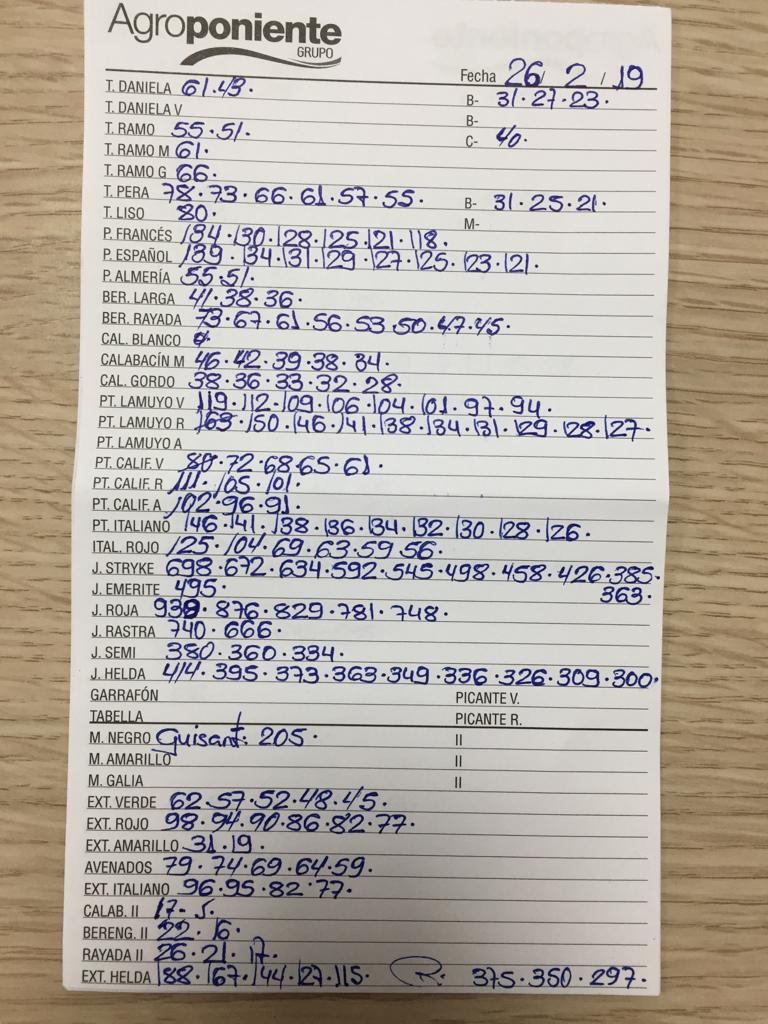 Agroponiente
GRUPO
Fecha 26/ 2 / 19
T. DANIELA 61.43. B- 31.27.23.
T. DANIELA V B-
T. RAMO 55.51. C- 40.
T. RAMO M 61.
T. RAMO G 66.
T. PERA 78.73.66.61.57.55. B- 31.25.21.
T. LISO 80. M-
P. FRANCÉS 134.130.128.125.121.118.
P. ESPAÑOL 139.134.131.129.127.125.123.121.
P. ALMERÍA 55.51.
BER. LARGA 41.38.36.
BER. RAYADA 73.67.61.56.53.50.47.45.
CAL. BLANCO
CALABACÍN M 46.42.39.38.34.
CAL. GORDO 38.36.33.32.28.
PT. LAMUYO V 119.112.109.106.104.101.97.94.
PT. LAMUYO R 163.150.146.141.138.134.131.129.128.127.
PT. LAMUYO A
PT. CALIF. V 80.72.68.65.61.
PT. CALIF. R 111.105.101.
PT. CALIF. A 102.96.91.
PT. ITALIANO 146.141.138.136.134.132.130.128.126.
ITAL. ROJO 125.104.69.63.59.56.
J. STRYKE 698.672.634.592.545.498.458.426.385.
J. EMERITE 495. 363.
J. ROJA 939.876.829.781.748.
J. RASTRA 740.666.
J. SEMI 380.360.334.
J. HELDA 414.395.373.363.349.336.326.309.300.
GARRAFÓN PICANTE V.
TABELLA PICANTE R.
M. NEGRO Guisant: 205. II
M. AMARILLO II
M. GALIA II
EXT. VERDE 62.57.52.48.45.
EXT. ROJO 98.94.90.86.82.77.
EXT. AMARILLO 31.19.
AVENADOS 79.74.69.64.59.
EXT. ITALIANO 96.95.82.77.
CALAB. II 17.5.
BERENG. II 22.16.
RAYADA II 26.21.17.
EXT. HELDA 188.167.144.127.115. R. 375.350.297.